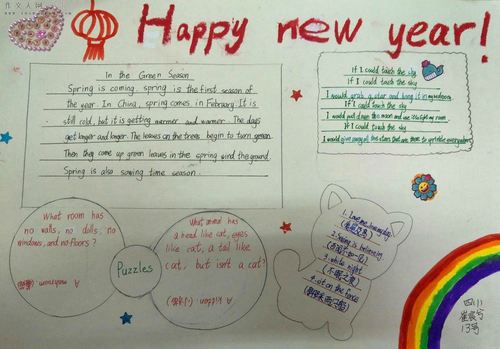 Happy new year!
In the Green Season
Spring is coming. spring is the first season of
the year. In China, spring comes in February. It is
still cold, but it is getting warmer and warmer. The days
get longer and longer. The leaves on the trees begin to turn green.
Then they come up green leaves in the spring wind the ground.
Spring is also sowing time season.
If I could touch the sky
If I could touch the sky
I would grab a star and hang it in my bedroom
If I could touch the sky
I would pull down the moon and use it to light my room
If I could touch the sky
I would give away all the stars that are there to sprinkle everywhere
What room has
no walls, no dolls, no
windows, and no floors?
A mushroom.
Puzzles
What animal has
a head like cat, eyes
like cat, a tail like
cat, but isn't a cat?
A kitten.
1. Love me love my dog
2. Seeing is believing
3. white night
4. on the fence
四小
13号